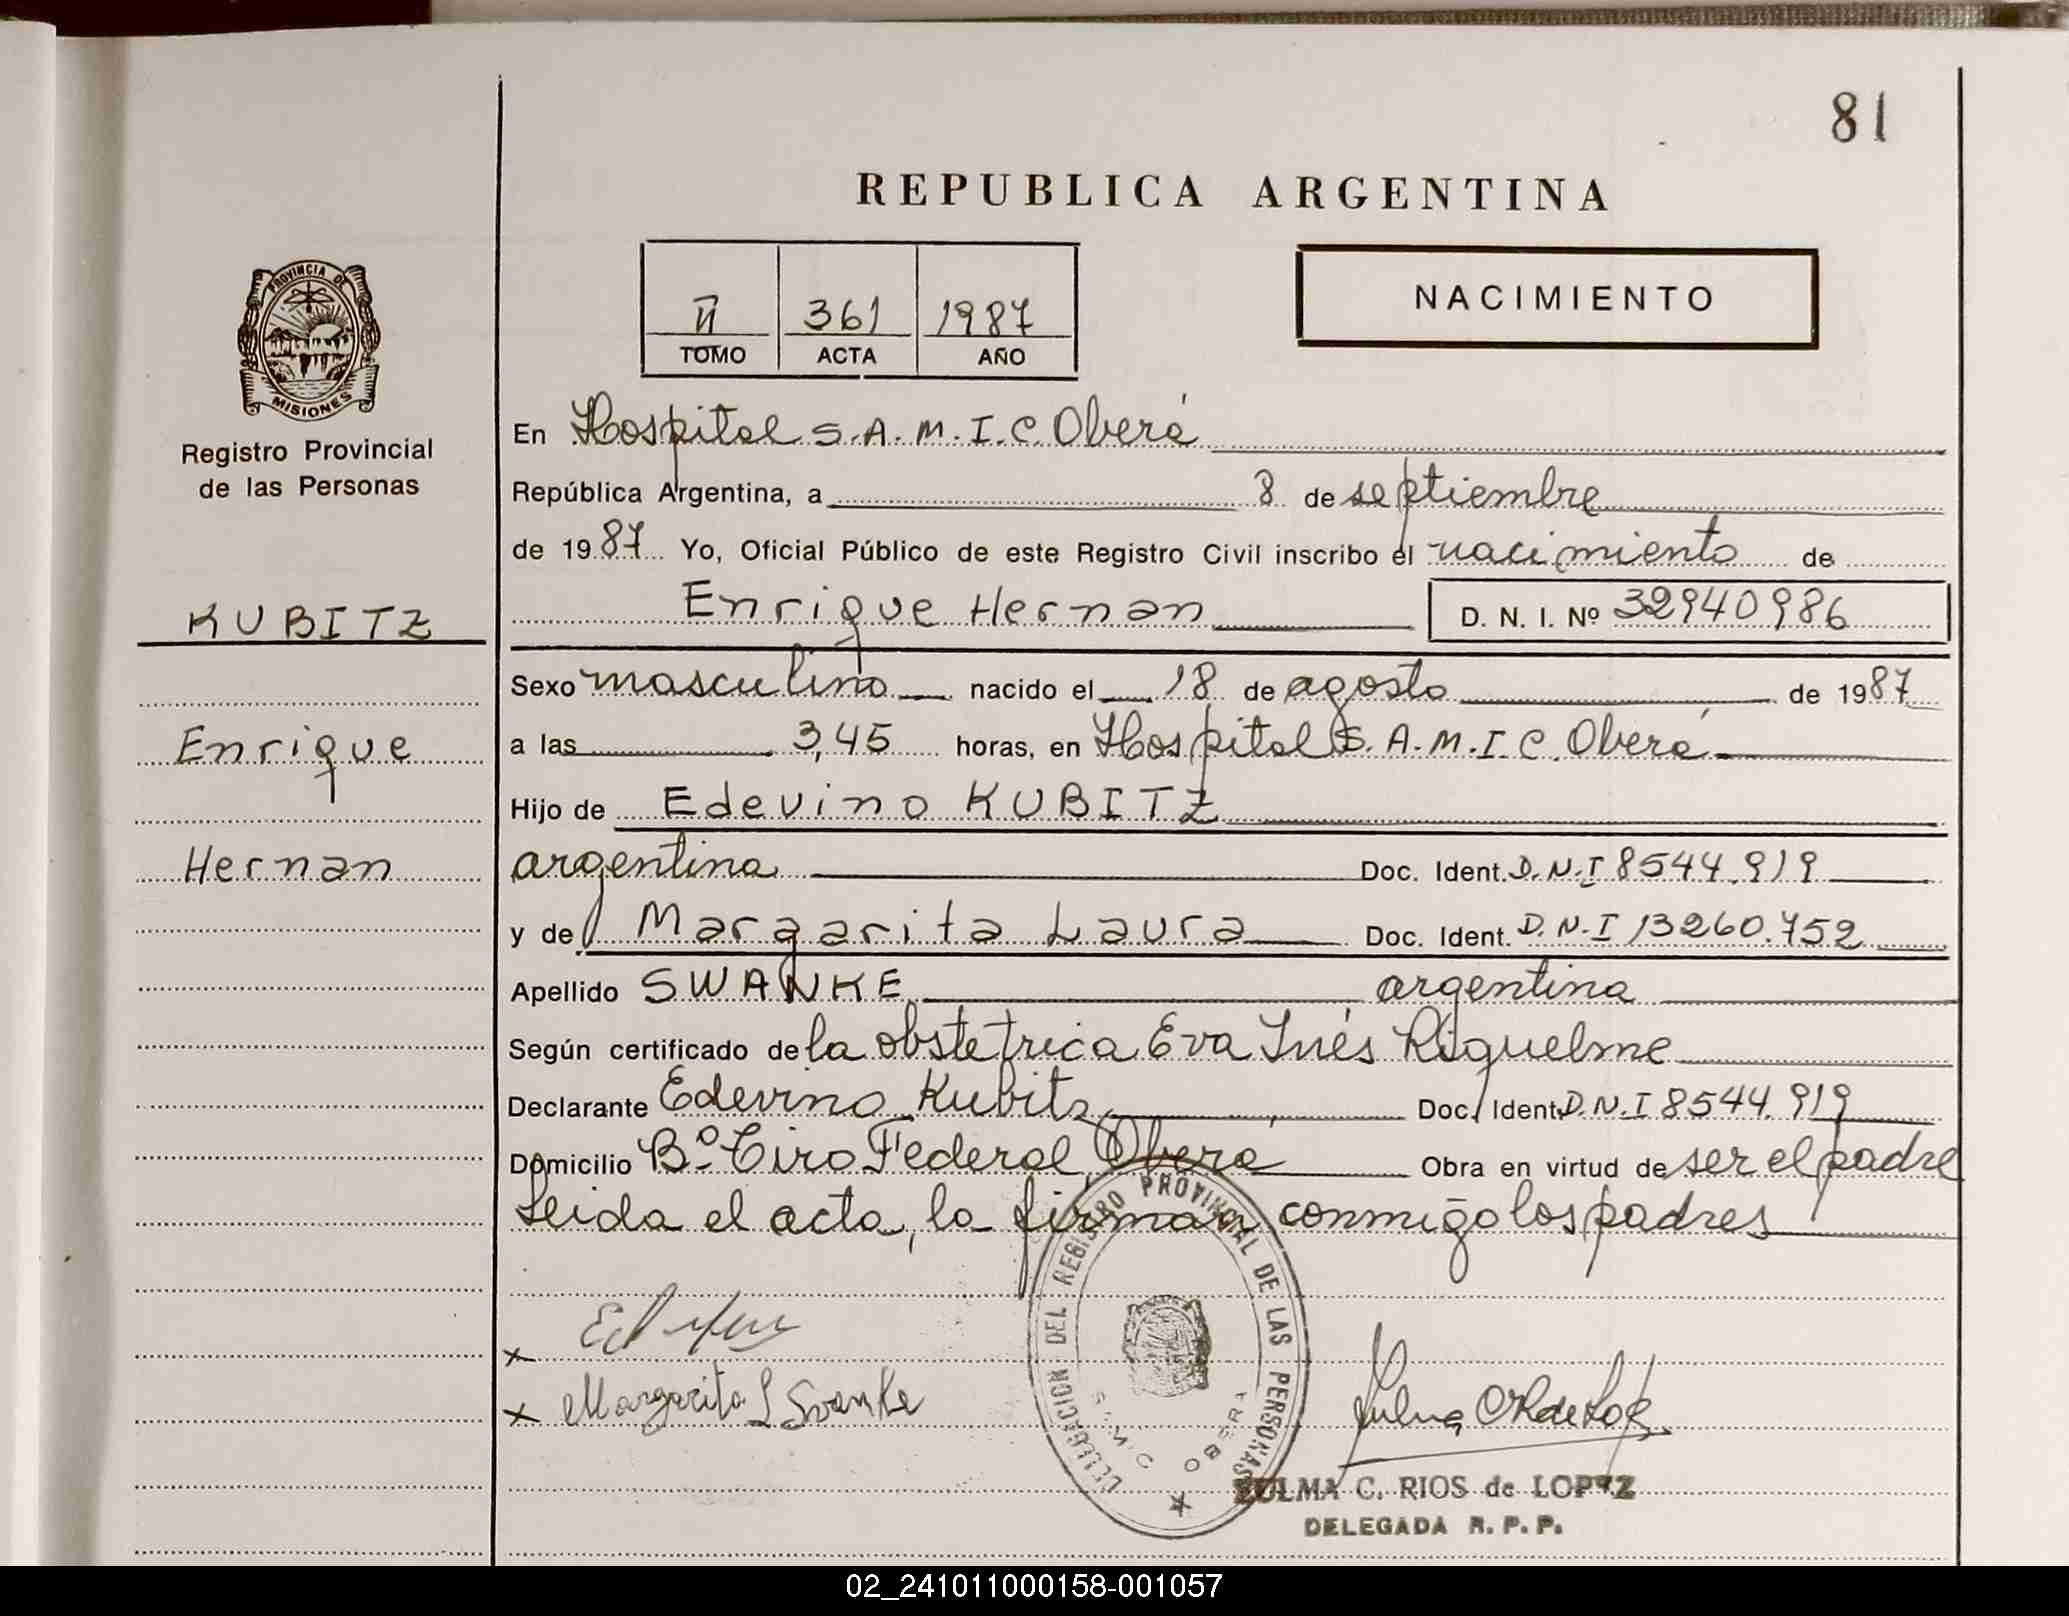 81
REPUBLICA ARGENTINA
PROVINCIA DE
MISIONES
Registro Provincial
de las Personas
II 361 1987
TOMO ACTA AÑO
NACIMIENTO
En Hospital S.A.M.I.C. Oberá
República Argentina, a 8 de septiembre
de 1987 Yo, Oficial Público de este Registro Civil inscribo el nacimiento de
KUBITZ
Enrique Hernan D. N. I. Nº 32940986
Sexo masculino nacido el 18 de agosto de 1987
Enrique
a las 3,45 horas, en Hospital S.A.M.I.C. Oberá
Hijo de Edevino KUBITZ
Hernan
argentina Doc. Ident. D.N.I 8544.919
y de Margarita Laura Doc. Ident. D.N.I 13260.752
Apellido SWANKE argentina
Según certificado de la obstetrica Eva Inés Riquelme
Declarante Edevino Kubitz Doc. Ident. D.N.I 8544.919
Domicilio Bº Tiro Federal, Oberá Obra en virtud de ser el padre
Leida el acta, la firman conmigo los padres
DELEGACION DEL REGISTRO PROVINCIAL DE LAS PERSONAS
S.A.M.I.C OBERA
x
x Margarita L Swanke
ZULMA C. RIOS de LOPEZ
DELEGADA R. P. P.
02_241011000158-001057